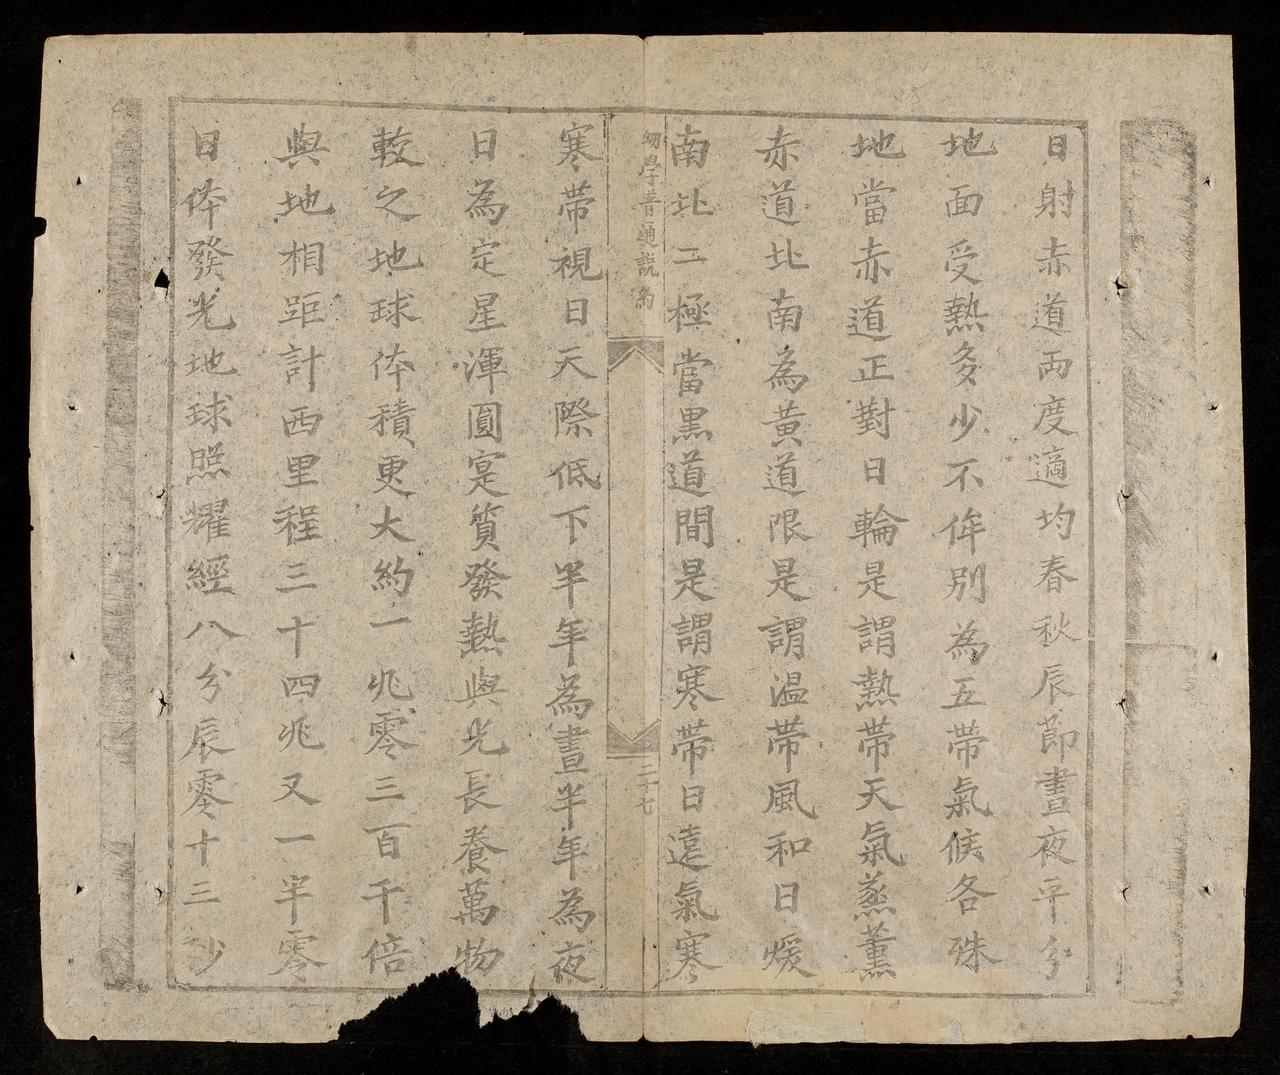 日射赤道両度適均春秋辰節晝夜平分
地面受熱多少不侔別為五帶氣候各殊
地當赤道正對日輪是謂熱帶天氣蒸薰
赤道北南為黃道限是謂温帶風和日煖
南北二極當黒道間是謂寒帶日遠氣寒
幼學普通說約
三十七
寒帶視日天際低下半年為晝半年為夜
日為定星渾圓寔質發熱與光長養萬物
較之地球体積更大約一兆零三百千倍
與地相距計西里程三十四兆又一半零
日体發光地球照耀經八分辰零十三少